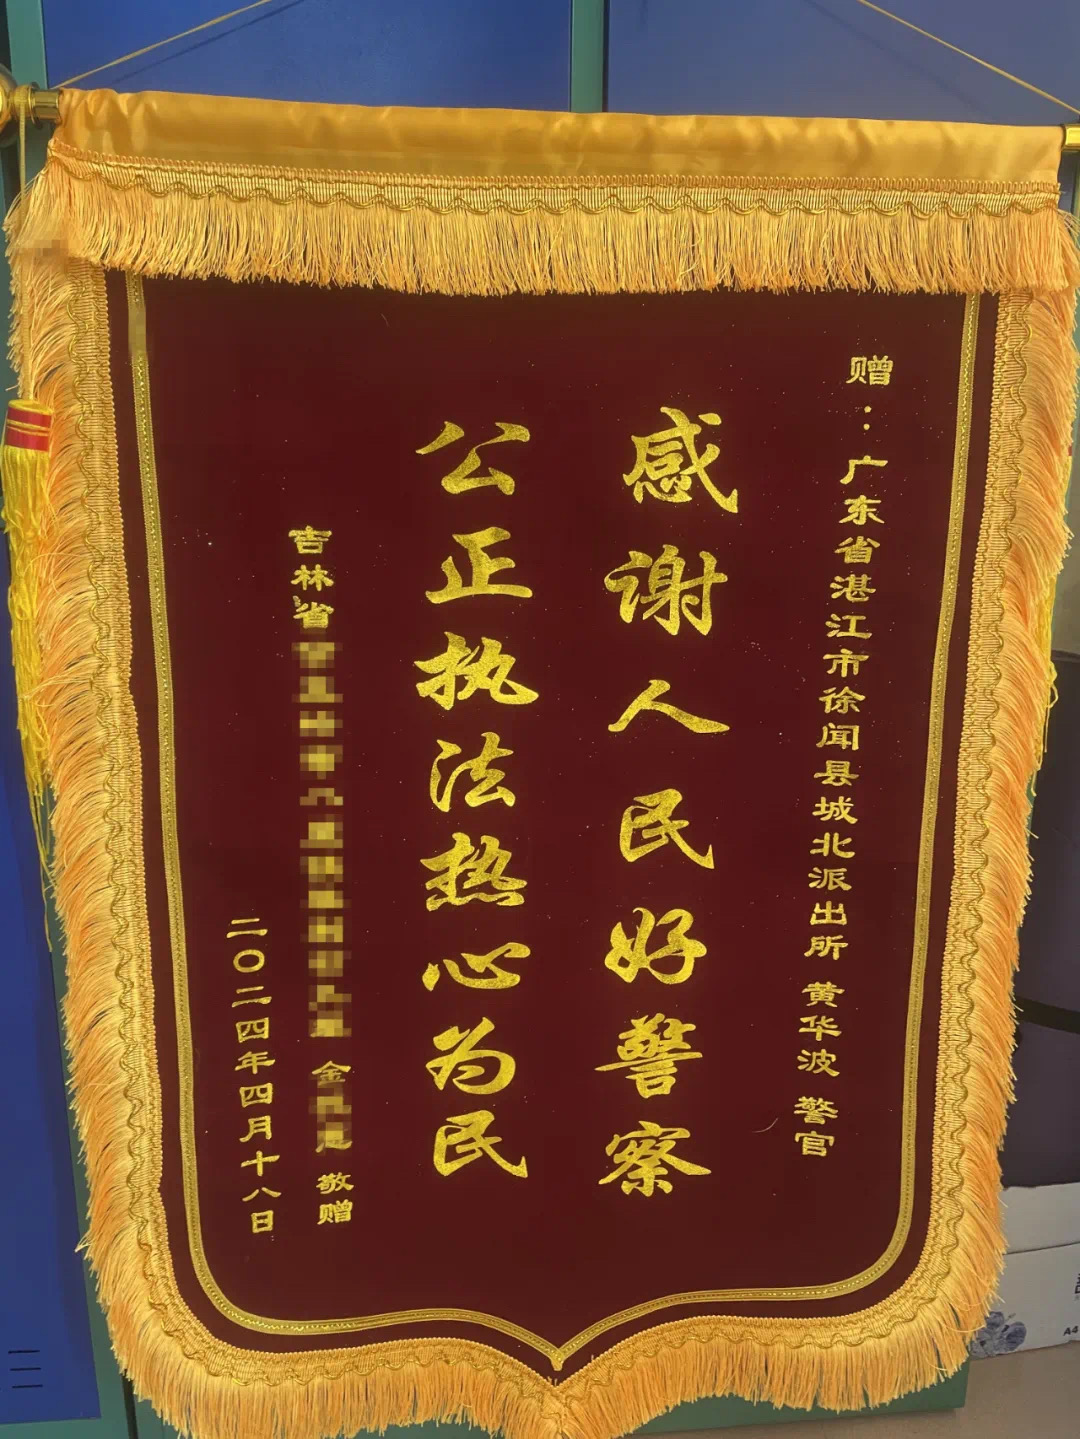 赠：广东省湛江市徐闻县城北派出所 黄华波 警官
感谢人民好警察
公正执法热心为民
吉林省 金 敬赠
二〇二四年四月十八日
A4